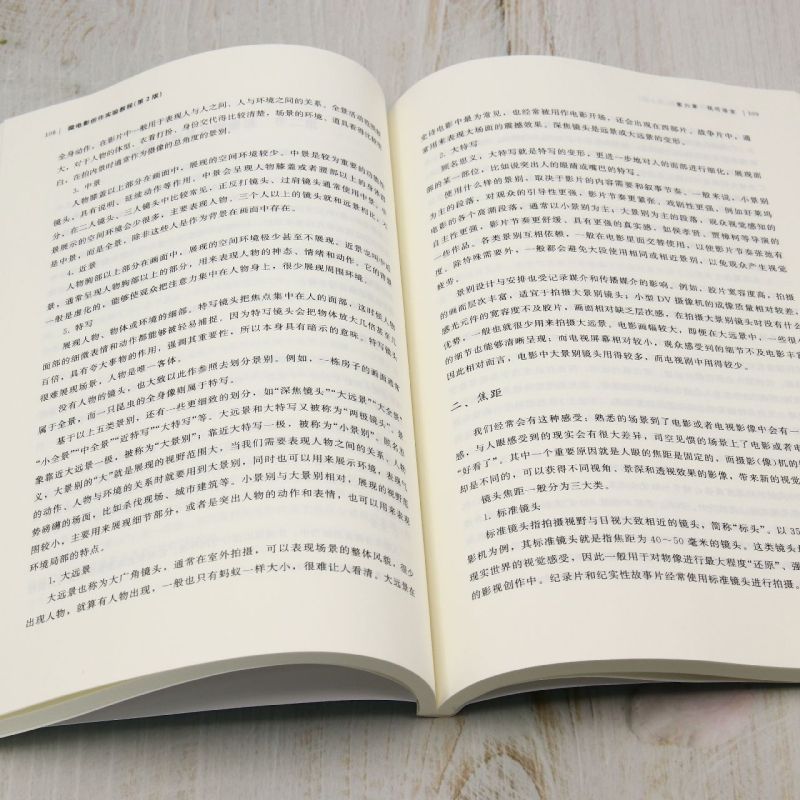 108 | 微电影创作实验教程(第2版)
全身动作，在影片中一般用于表现人与人之间、人与环境之间的关系。全景活动范围较
大，对于人物的体型、衣着打扮、身份交代得比较清楚，场景的环境、道具看得比较明
白，在拍内景时通常作为摄像的总角度的景别。
3. 中景
人物膝盖以上部分在画面中，展现的空间环境较少。中景是较为重要的功能性
镜头，具有说明、延续动作等作用，中景会呈现人物膝盖或者腰部以上的身体部
分，在二人镜头、三人镜头中比较常见，正反打镜头、过肩镜头通常使用中景。中
景展示的空间环境会少很多，主要表现人物。三个人以上的镜头就和远景相比，不
是中景，而是全景，除非这些人是作为背景在画面中存在。
4. 近景
人物胸部以上部分在画面中，展现的空间环境极少甚至不展现。近景空间中近
景，通常呈现人物胸部以上的部分，用来表现人物的神态、情绪和动作。它的背景
一般是虚化的，能够使观众把注意力集中在人物身上，很少展现周围环境。
5. 特写
展现人物、物体或环境的细部。特写镜头把焦点集中在人的面部，这时候人物
面部的细微表情和动作都能够被轻易捕捉，因为特写镜头会把物体放大几倍甚至几
百倍，具有夸大事物的作用，强调其重要性，所以本身具有暗示的意味。特写镜头
很难展现场景，人物是唯一客体。
没有人物的镜头，也大致以此作参照去划分景别。例如，一栋房子的画面通常
属于全景，而一只昆虫的全身像则属于特写。
基于以上五类景别，还有一些更细致的划分，如“深焦镜头”“大远景”“大全景”
“小全景”“中全景”“近特写”“大特写”等。大远景和大特写又被称为“两极镜头”，景
象靠近大远景一极，被称为“大景别”；靠近大特写一极，被称为“小景别”。顾名思
义，大景别的“大”就是展现的视野范围大，当我们需要表现人物之间的关系、人物
的动作、人物与环境的关系时就要用到大景别，同时也可以用来展示环境，表现气
势磅礴的场面，比如杀伐现场、城市建筑等。小景别与大景别相对，展现的视野范
围较小，主要用来展现细节部分，或者是突出人物的动作和表情，也可以用来表现
环境局部的特点。
1. 大远景
大远景也称为大广角镜头，通常在室外拍摄，可以表现场景的整体风貌，很少
出现人物，就算有人物出现，一般也只有蚂蚁一样大小，很难让人看清。大远景在
第六章 视听语言 | 109
史诗电影中最为常见，也经常被用作电影开场，还会出现在西部片、战争片中，通
常用来表现大场面的震撼效果。深焦镜头是远景或大远景的变形。
2. 大特写
顾名思义，大特写就是特写的变形，更进一步地对人的面部进行细化，展现面
部的某一部位，比如说突出人的眼睛或嘴巴的特写。
使用什么样的景别，取决于影片的内容需要和叙事节奏。一般来说，小景别
为主的段落，对观众的引导性更强，影片节奏更紧张，戏剧性更强，例如好莱坞
电影的各个高潮段落，通常以小景别为主；大景别为主的段落，观众视觉感知的
自主性更强，影片节奏更舒缓、具有更强的真实感，如侯孝贤、贾樟柯等导演的
一些作品。各类景别互相依赖，一般在电影里面交替使用，以使影片节奏张弛有
度，除特殊需要外，一般都会避免大段使用相同或相近景别，以免观众产生视觉
疲劳。
景别设计与安排也受记录媒介和传播媒介的影响。例如，胶片宽容度高，拍摄
的画面层次丰富，适宜于拍摄大景别镜头；小型DV摄像机的成像质量相对较差，
感光元件的宽容度不及胶片，画面相对缺乏层次感，在拍摄大景别镜头时没有什么
优势，一般也就很少用来拍摄大远景。电影画幅较大，即便在大远景中，一些很小
的细节也能够清晰呈现，而电视屏幕相对较小，观众感受到的细节不及电影丰富，
因此相对而言，电影中大景别镜头用得较多，而电视剧中用得较少。
二、焦距
我们经常会有这种感受：熟悉的场景到了电影或者电视影像中会有一
感，与人眼感受到的现实会有很大差异，司空见惯的场景上了电影或者电
“好看了”。其中一个重要原因就是人眼的焦距是固定的，而摄影(像)机的
却是不同的，可以获得不同视角、景深和透视效果的影像，带来新的视觉
镜头焦距一般分为三大类。
1. 标准镜头
标准镜头指拍摄视野与目视大致相近的镜头，简称“标头”。以35
影机为例，其标准镜头就是指焦距为40～50毫米的镜头。这类镜头最
现实世界的视觉感受，因此一般用于对物像进行最大程度“还原”、强
的影视创作中。纪录片和纪实性故事片经常使用标准镜头进行拍摄。